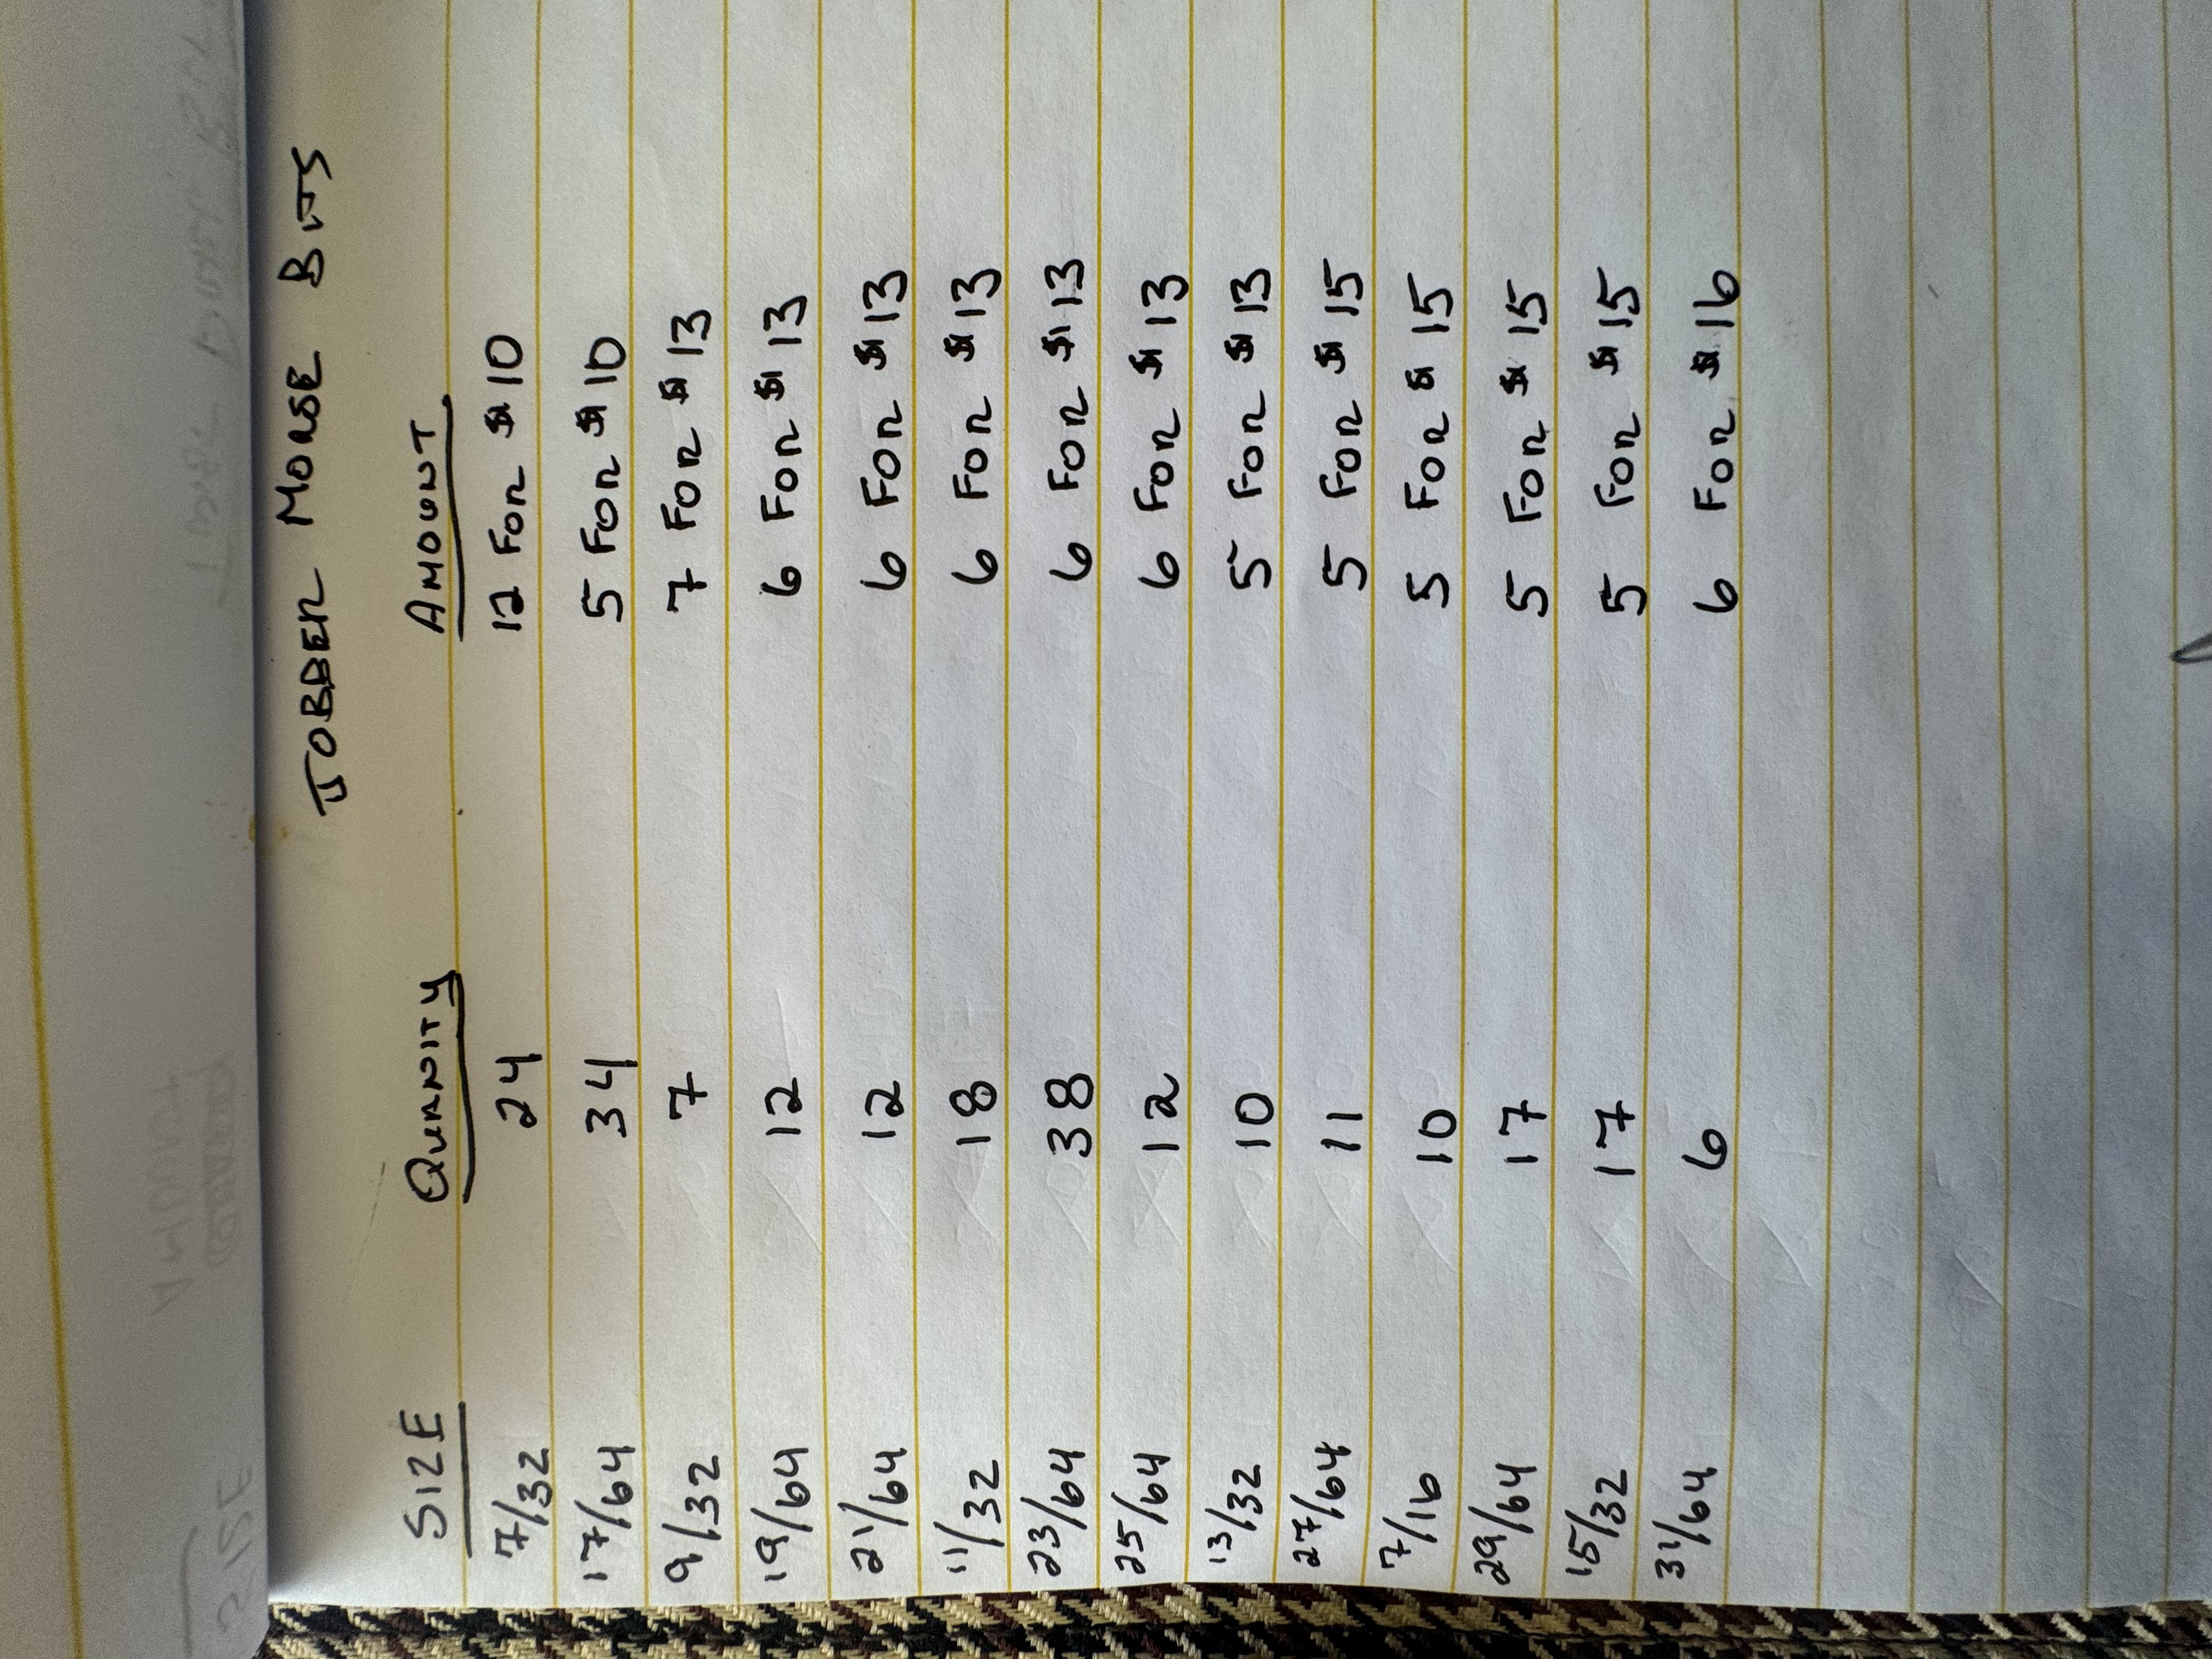 JOBBER MORSE BITS
SIZE QUANNITY AMOUNT
7/32 24 12 FOR $10
17/64 34 5 FOR $10
9/32 7 7 FOR $13
19/64 12 6 FOR $13
21/64 12 6 FOR $13
11/32 18 6 FOR $13
23/64 38 6 FOR $13
25/64 12 6 FOR $13
13/32 10 5 FOR $13
27/64 11 5 FOR $15
7/16 10 5 FOR $15
29/64 17 5 FOR $15
15/32 17 5 FOR $15
31/64 6 6 FOR $16